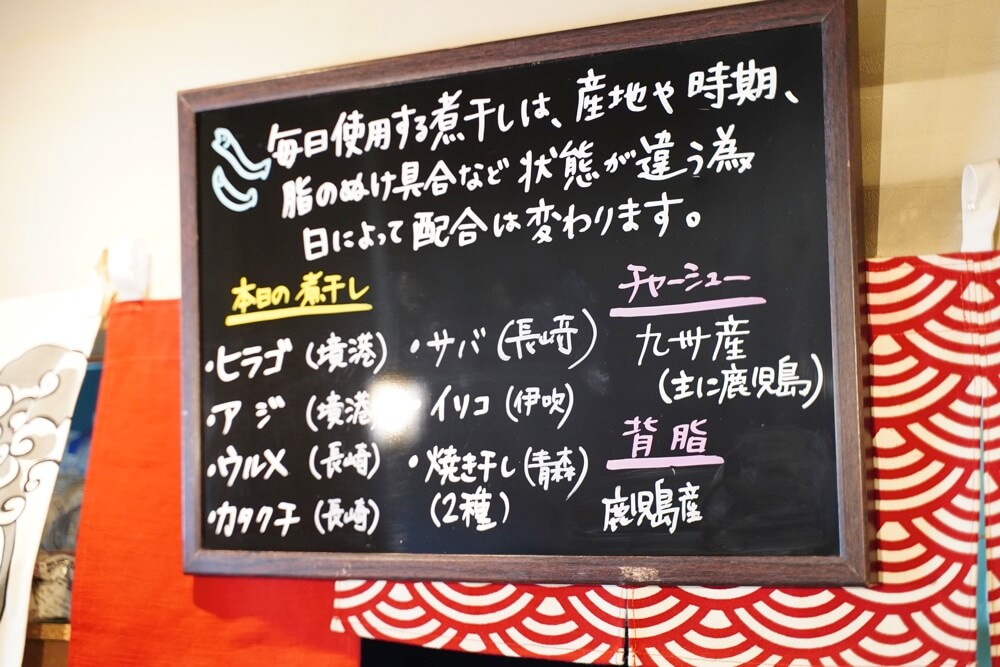 毎日使用する煮干しは、産地や時期、
脂のぬけ具合など状態が違う為
日によって配合は変わります。
本日の煮干し
・ヒラゴ (境港)
・アジ (境港)
・ウルメ (長崎)
・カタクチ (長崎)
・サバ (長崎)
・イリコ (伊吹)
・焼き干し (青森)
(2種)
チャーシュー
九州産
(主に鹿児島)
背脂
鹿児島産